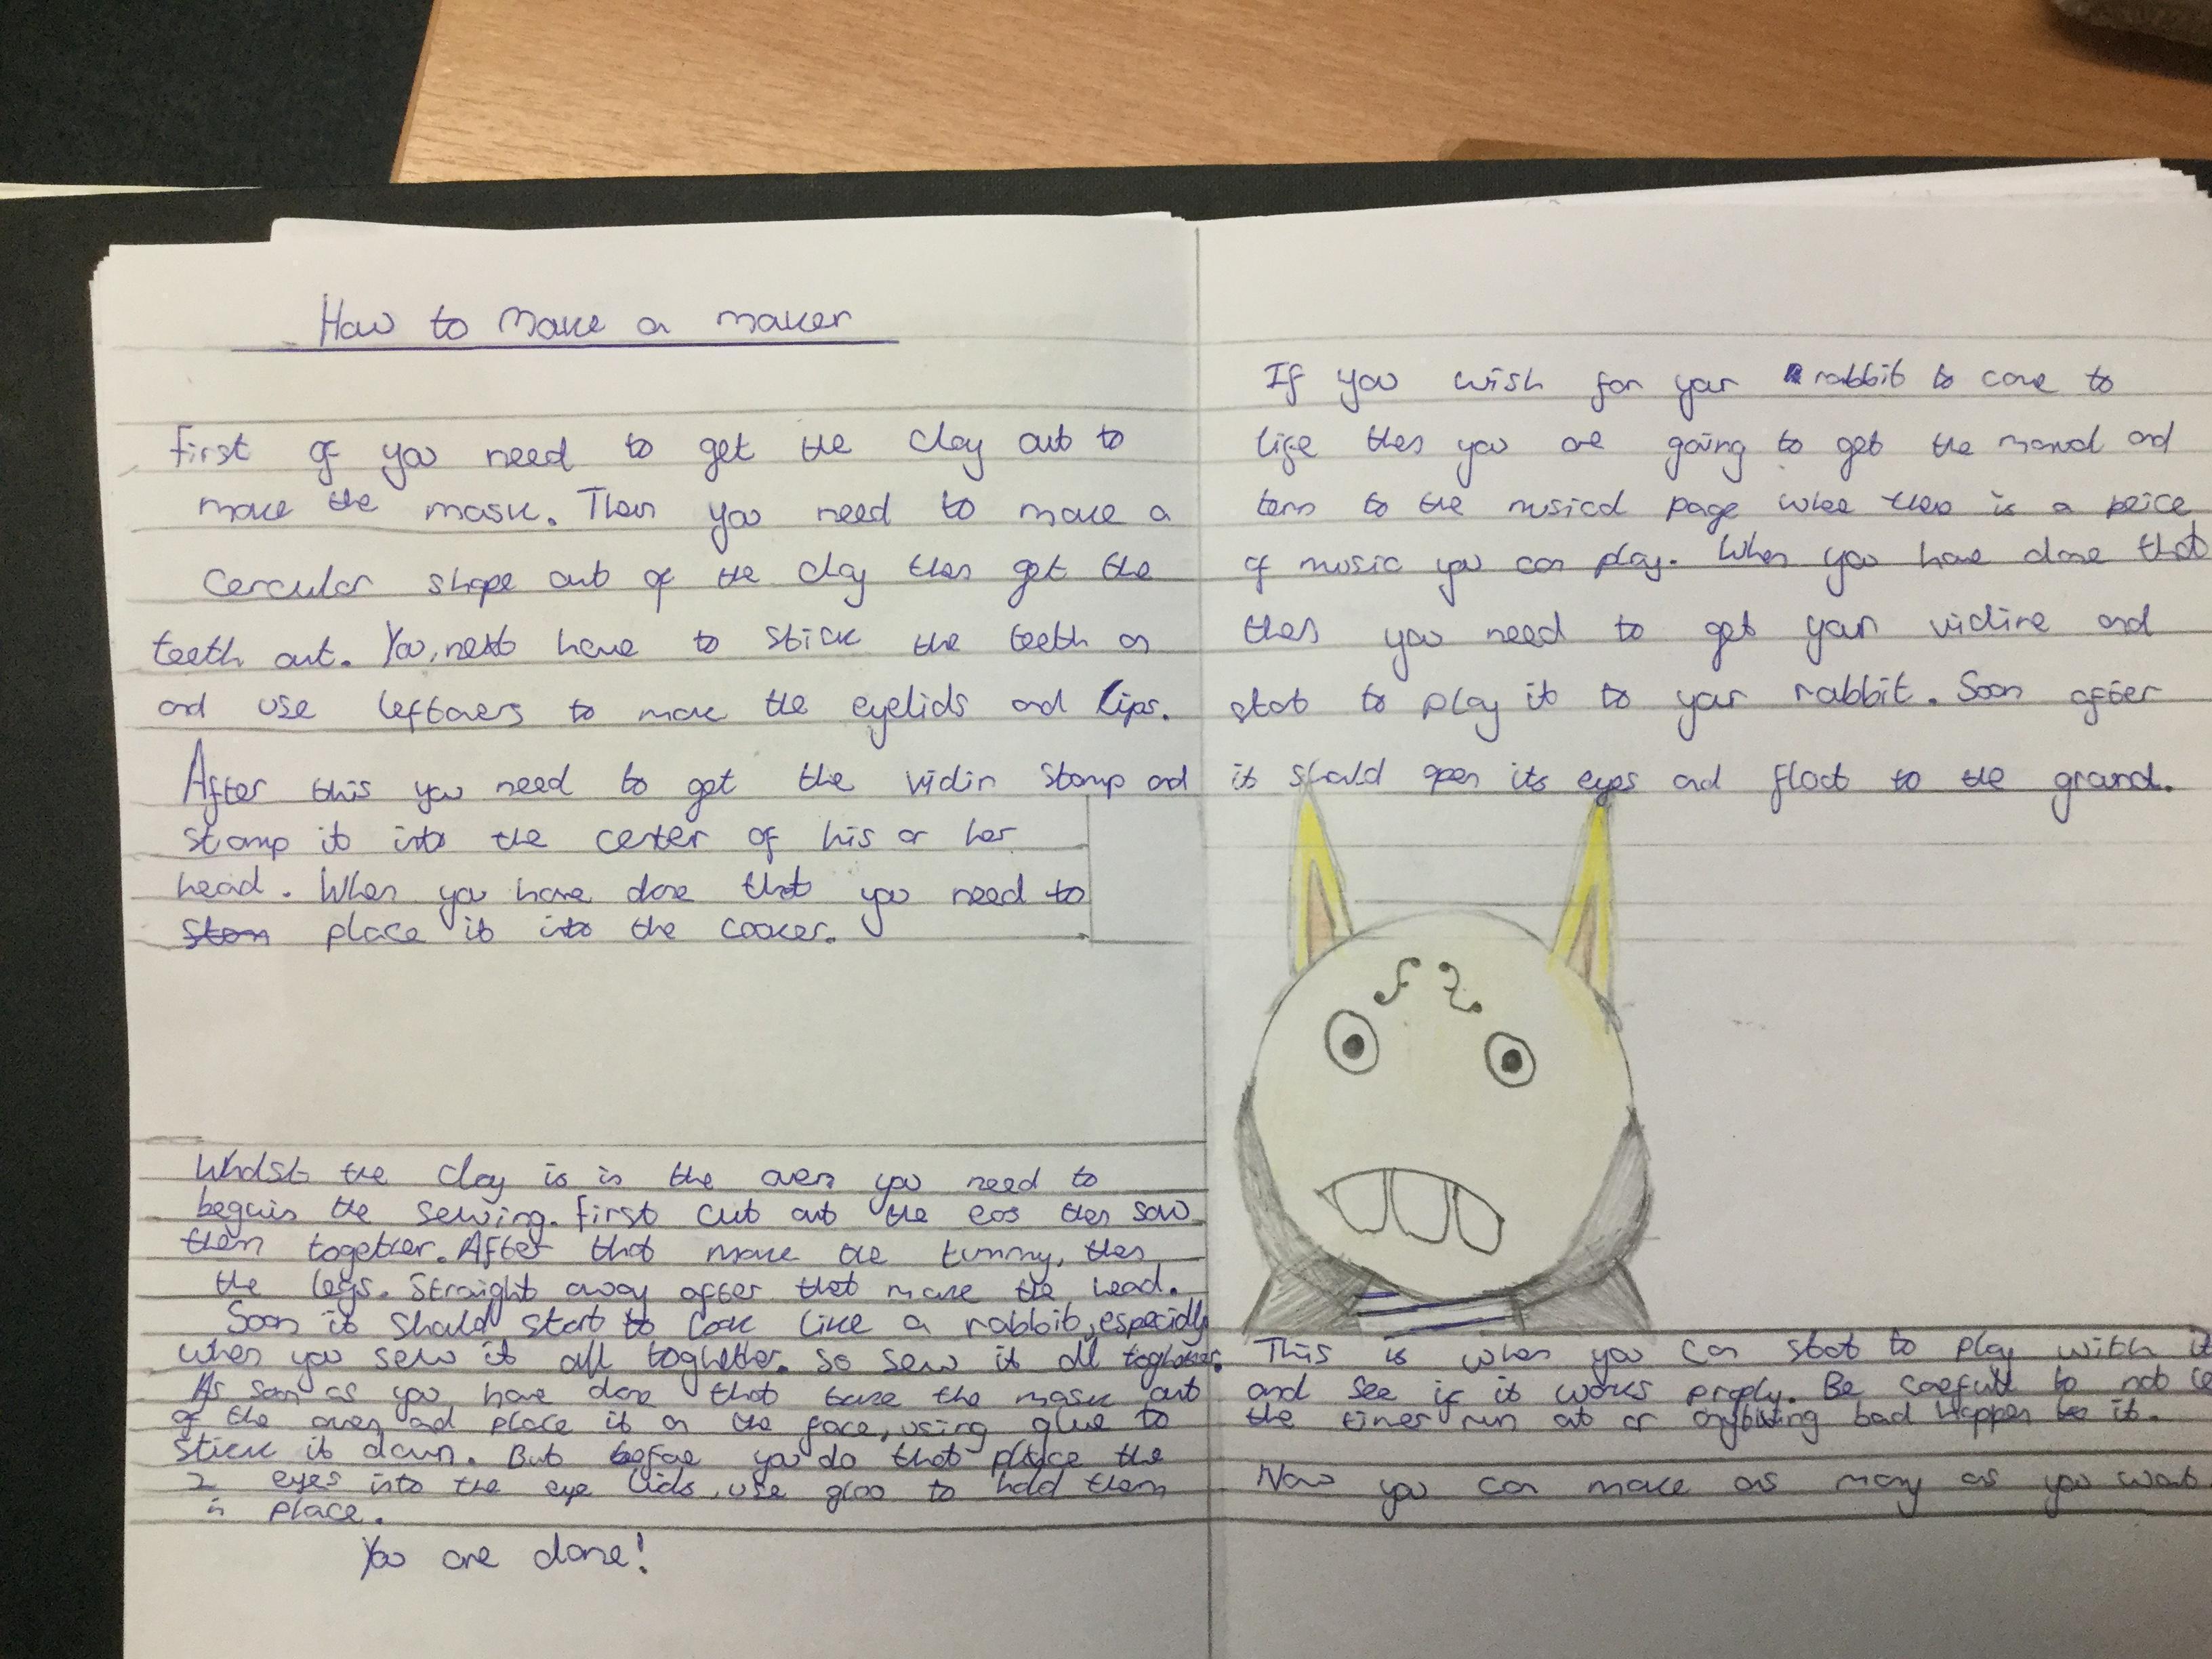 How to make a maker
First of you need to get the clay out to
make the mask. Then you need to make a
cercular shape out of the clay then get the
teeth out. You, next have to stick the teeth on
and use leftovers to make the eyelids and lips.
After this you need to get the violin stamp and
stamp it into the center of his or her
head. When you have done that you need to
stam place it into the cooker.
Whilst the clay is in the oven you need to
beguin the sewing. First cut out the ears then sow
them together. After that make the tummy, then
the legs. Straight away after that make the head.
Soon it should start to look like a rabbit, especially
when you sew it all toghether. So sew it all toghether.
As soon as you have done that take the mask out
of the oven and place it on the face, using glue to
stick it down. But before you do that place the
2 eyes into the eye lids, use gloo to hold them
in place.
You are done!
If you wish for your rabbit to come to
life then you are going to get the manual and
tern to the musical page where there is a peice
of music you can play. When you have done that
then you need to get your violine and
start to play it to your rabbit. Soon after
it should open its eyes and float to the ground.
This is when you can start to play with it
and see if it works proply. Be carefull to not le
the timer run out or anything bad happen to it.
Now you can make as many as you want